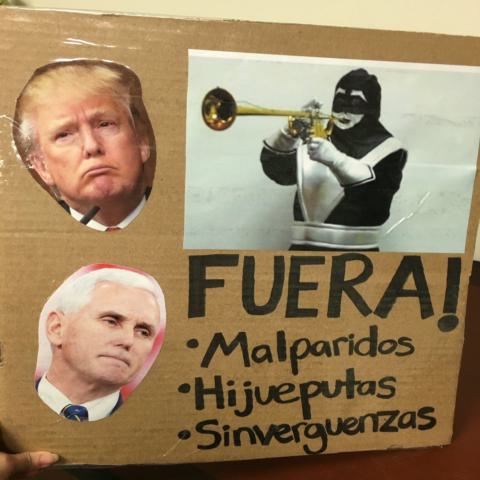 FUERA!
• Malparidos
• Hijueputas
• Sinverguenzas